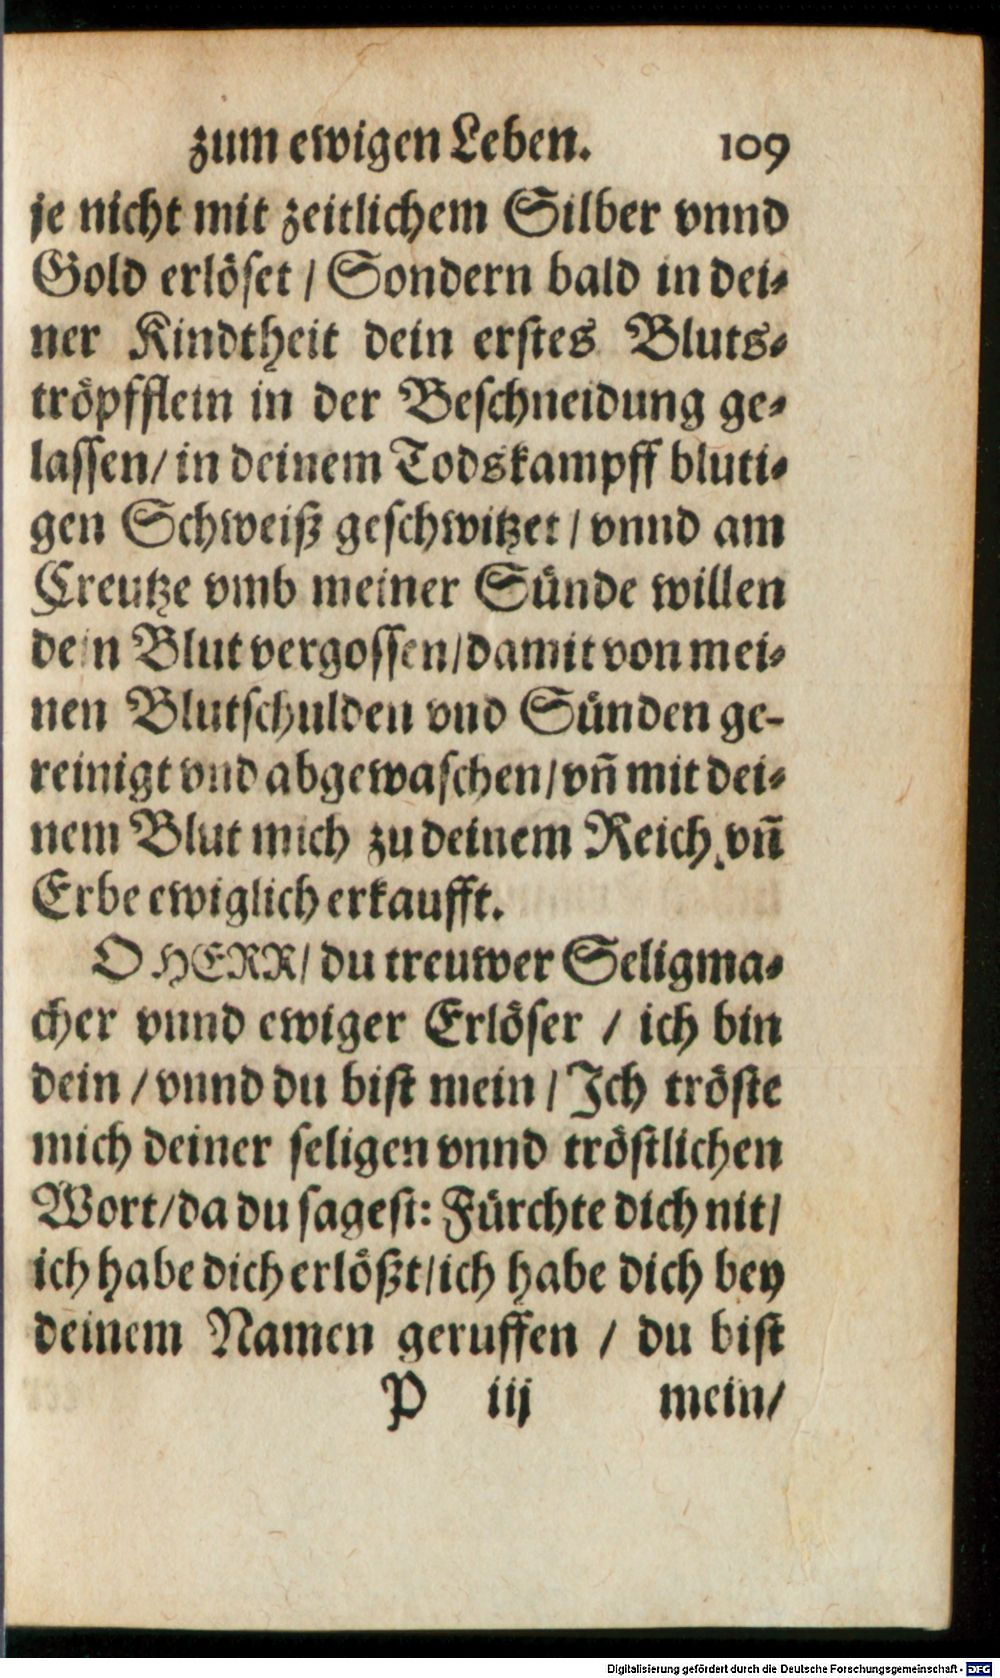 zum ewigen Leben. 109
je nicht mit zeitlichem Silber vnnd
Gold erlöset / Sondern bald in dei-
ner Kindtheit dein erstes Bluts-
tröpfflein in der Beschneidung ge-
lassen / in deinem Todskampff bluti-
gen Schweiß geschwitzet / vnnd am
Creutze vmb meiner Sünde willen
dein Blut vergossen / damit von mei-
nen Blutschulden vnd Sünden ge-
reinigt vnd abgewaschen / vñ mit dei-
nem Blut mich zu deinem Reich vñ
Erbe ewiglich erkaufft.
O HERR / du treuwer Seligma-
cher vnnd ewiger Erlöser / ich bin
dein / vnnd du bist mein / Ich tröste
mich deiner seligen vnnd tröstlichen
Wort / da du sagest: Fürchte dich nit /
ich habe dich erlößt / ich habe dich bey
deinem Namen geruffen / du bist
P iij mein /
Digitalisierung gefördert durch die Deutsche Forschungsgemeinschaft - DFG